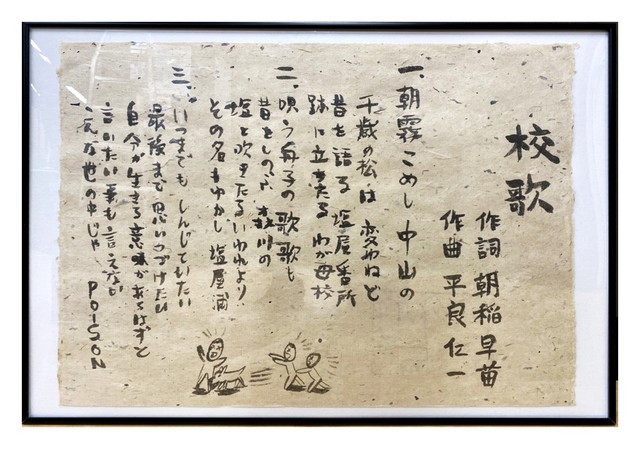 校歌
作詞 朝稲 早苗
作曲 平良 仁一
一、朝霧こめし 中山の
千歳の松は 変わねど
昔を語る 塩屋番所
跡に立てる わが母校
二、唄う舟子の 歌歌も
昔をしのぶ 森川の
塩と吹きたるいわれより
その名もゆかし 塩屋浦
三、いつまでも しんじていたい
最後まで 思いつづけたい
自分が生きる 意味があるはずと
言いたい事も 言えない
こんな世の中じゃ POISON